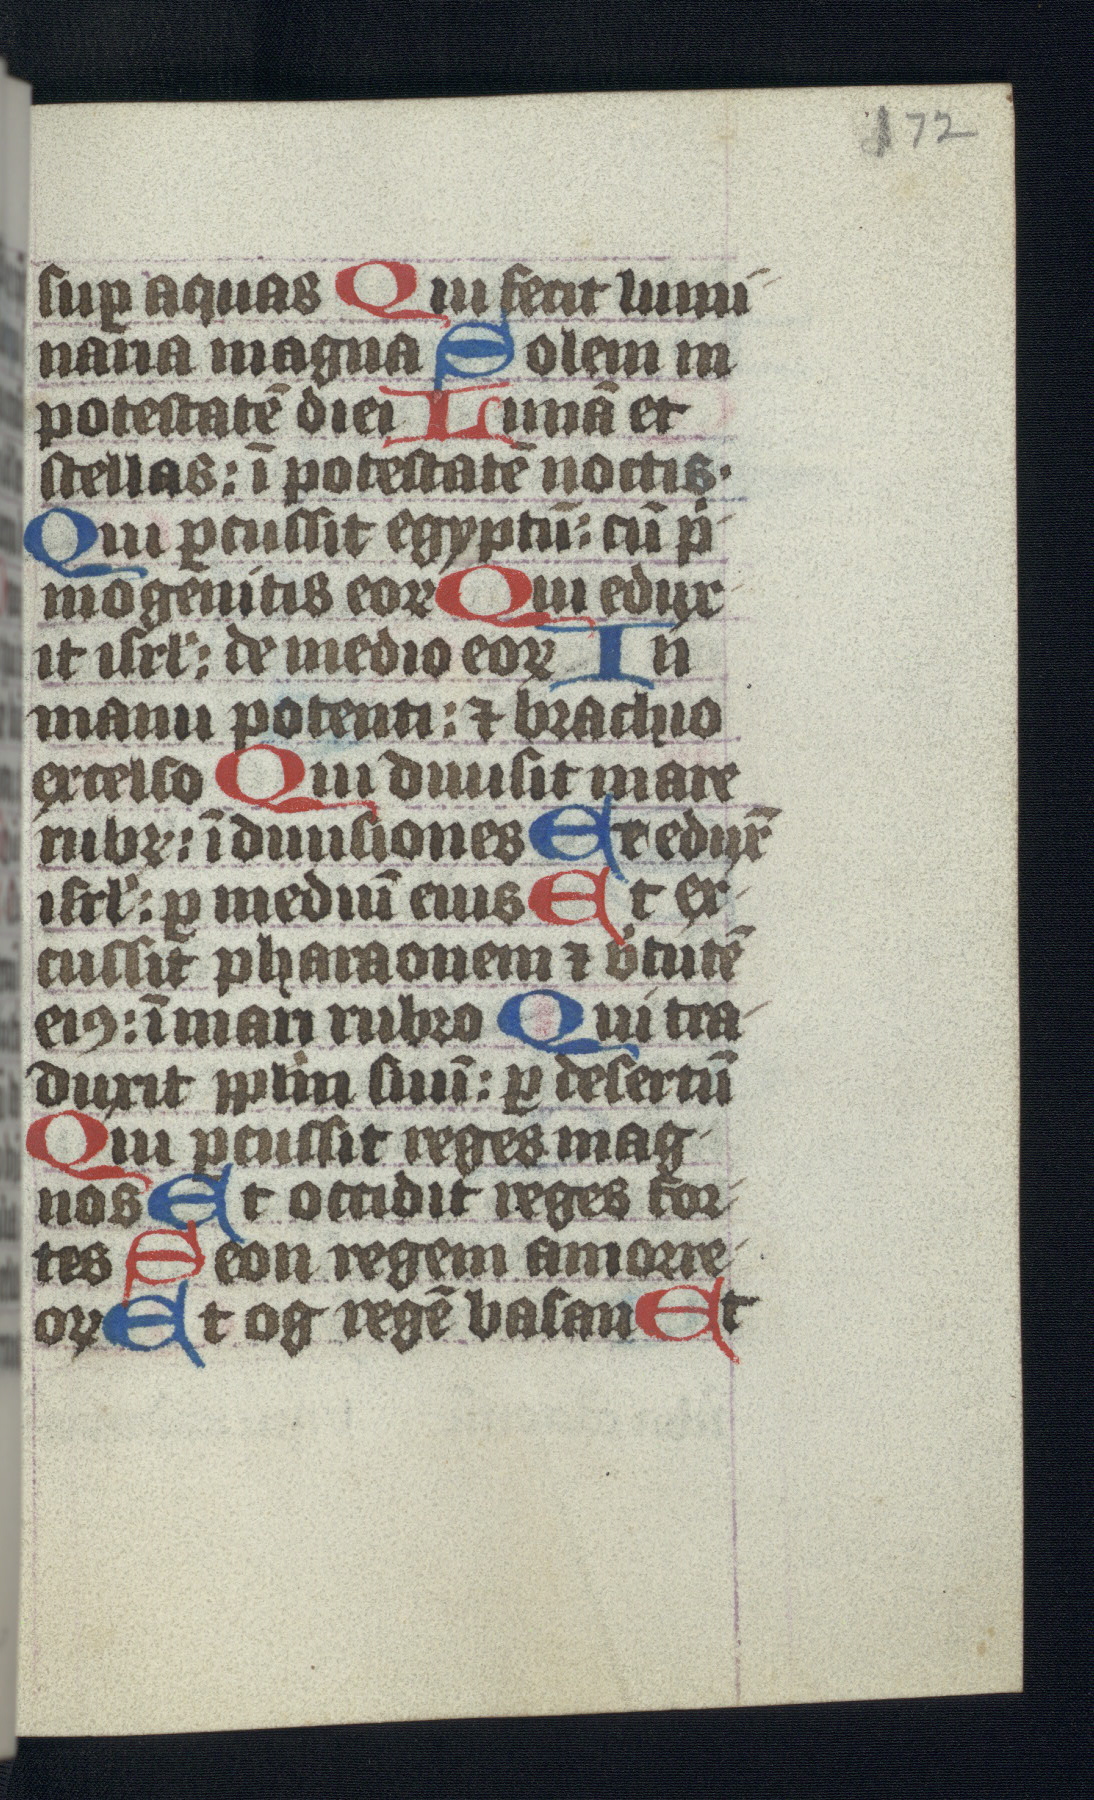 172
sup̲ aquas Qui fecit lumi
naria magna Solem in
potestatē diei Lunā et
stellas: ī potestate noctis.
Qui p̲cussit egyptū: cū pⁱ
mogenitis eoꝝ Qui edux
it isrl': de medio eoꝝ In
manu potenti: ⁊ brachio
excelso Qui diuisit mare
rubꝝ: ī diuisiones Et edux̄
isrl': ꝑ mediū eius Et ex
cussit pharaonem ⁊ v̾tutē
eiꝯ: ī mari rubro Qui tra
duxit pplm suū: ꝑ desertū
Qui ꝑcussit reges mag
nos Et occidit reges for
tes Seon regem amorre
oꝝ Et og regē basan Et